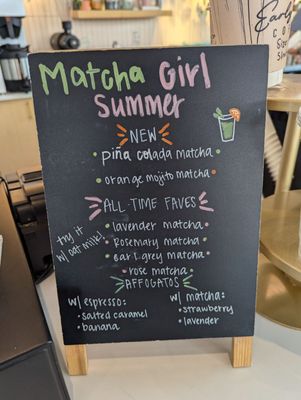 Matcha Girl
Summer
NEW
piña colada matcha
orange mojito matcha
ALL-TIME FAVES
try it
w/ oat milk!
lavender matcha
Rosemary matcha
earl grey matcha
rose matcha
AFFOGATOS
w/ espresso:
salted caramel
banana
w/ matcha:
strawberry
lavender